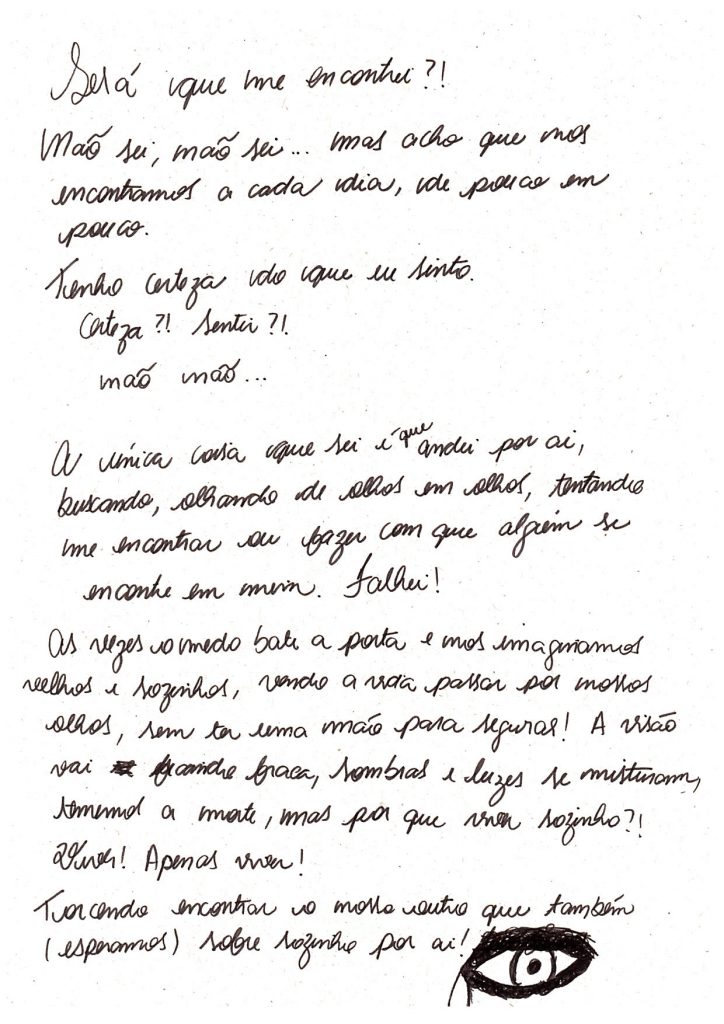 Será que me encontrei?!
Não sei, não sei... mas acho que nos
encontramos a cada dia, de pouco em
pouco.
Tenho certeza do que eu sinto.
Certeza?! Sentir?!
não não...
A única coisa que sei é que andei por ai,
buscando, olhando de olhos em olhos, tentando
me encontrar ou fazer com que alguém se
encontre em mim. Falhei!
As vezes o medo bate a porta e nos imaginamos
velhos e sozinhos, vendo a vida passar por nossos
olhos, sem ter uma mão para segurar! A visão
vai ficando fraca, sombras e luzes se misturam,
tememos a morte, mas por que viver sozinho?!
Viver! Apenas viver!
Torcendo encontrar o nosso outro que também
(esperamos) sobre sozinho por ai!